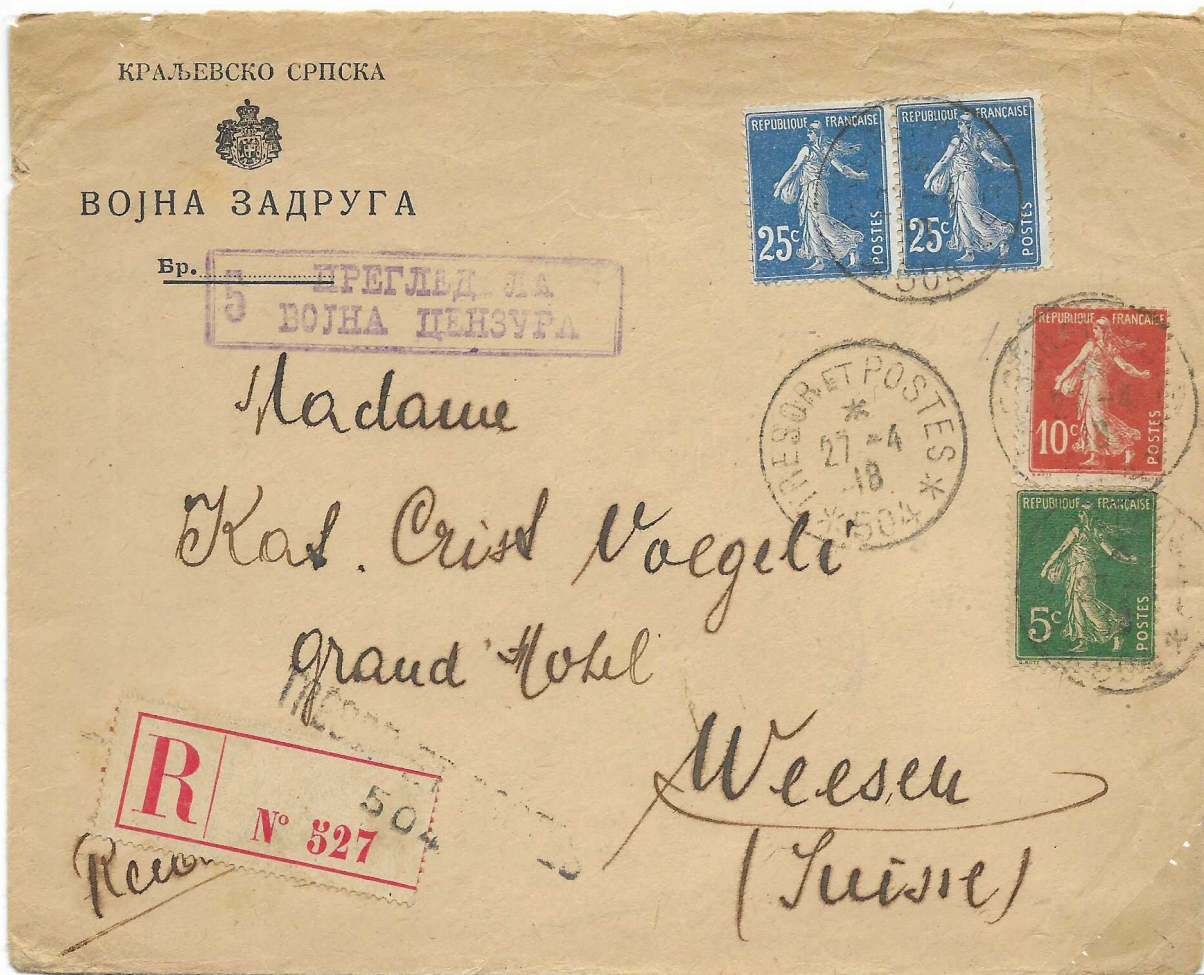 КРАЉЕВСКО СРПСКА
ВОЈНА ЗАДРУГА
Бр.
5 ПРЕГЛЕДАЛА
ВОЈНА ЦЕНЗУРА
REPUBLIQUE FRANÇAISE
25c POSTES
REPUBLIQUE FRANÇAISE
25c POSTES
504
REPUBLIQUE FRANÇAISE
10c POSTES
REPUBLIQUE FRANÇAISE
5c POSTES
TRESOR ET POSTES
27 -4
18
504
Madame
Kat. Crist Voegeli
Grand Hotel
Weesen
(Suisse)
TRESOR ET POSTES
504
R
No 527